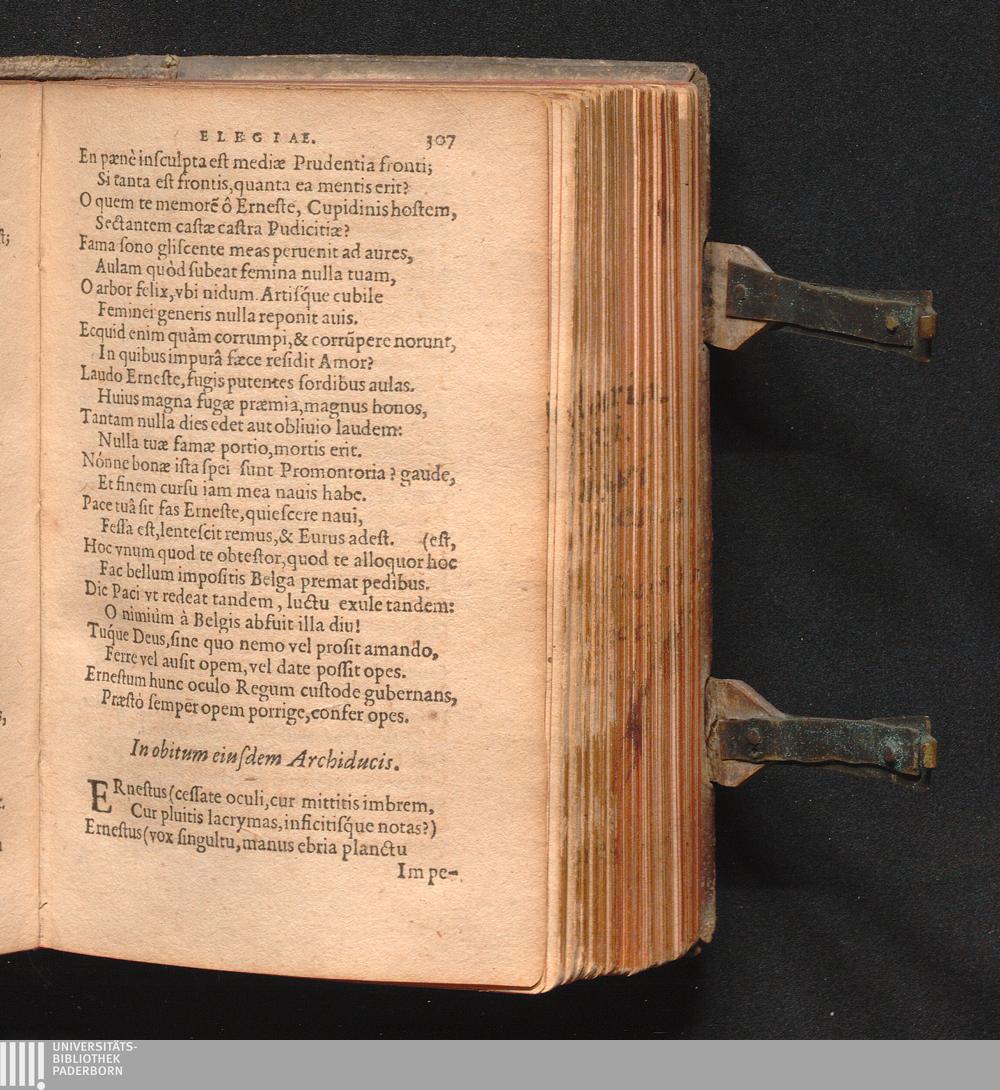 ELEGIAE. 307
En pænè inſculpta eſt mediæ Prudentia fronti;
Si tanta eſt frontis, quanta ea mentis erit?
O quem te memorẽ ô Erneſte, Cupidinis hoſtem,
Sectantem caſtæ caſtra Pudicitiæ?
Fama ſono gliſcente meas peruenit ad aures,
Aulam quòd ſubeat femina nulla tuam,
O arbor felix, vbi nidum Artiſq́ue cubile
Feminei generis nulla reponit auis.
Ecquid enim quàm corrumpi, & corrũpere norunt,
In quibus impurâ fæce reſidit Amor?
Laudo Erneſte, fugis putentes ſordibus aulas.
Huius magna fugæ præmia, magnus honos,
Tantam nulla dies edet aut obliuio laudem:
Nulla tuæ famæ portio, mortis erit.
Nónne bonæ iſta ſpei ſunt Promontoria? gaude,
Et finem curſu iam mea nauis habe.
Pace tuâ ſit fas Erneſte, quieſcere naui,
Feſſa eſt, lenteſcit remus, & Eurus adeſt. (eſt,
Hoc vnum quod te obteſtor, quod te alloquor hoc
Fac bellum impoſitis Belga premat pedibus.
Dic Paci vt redeat tandem, luctu exule tandem:
O nimiùm à Belgis abfuit illa diu!
Tuq́ue Deus, ſine quo nemo vel proſit amando,
Ferre vel auſit opem, vel date poſſit opes.
Erneſtum hunc oculo Regum cuſtode gubernans,
Præſtò ſemper opem porrige, confer opes.
In obitum eiuſdem Archiducis.
ERneſtus (ceſſate oculi, cur mittitis imbrem,
Cur pluitis lacrymas, inficitiſq́ue notas?)
Erneſtus (vox ſingultu, manus ebria planctu
Impe-
UNIVERSITÄTS-
BIBLIOTHEK
PADERBORN